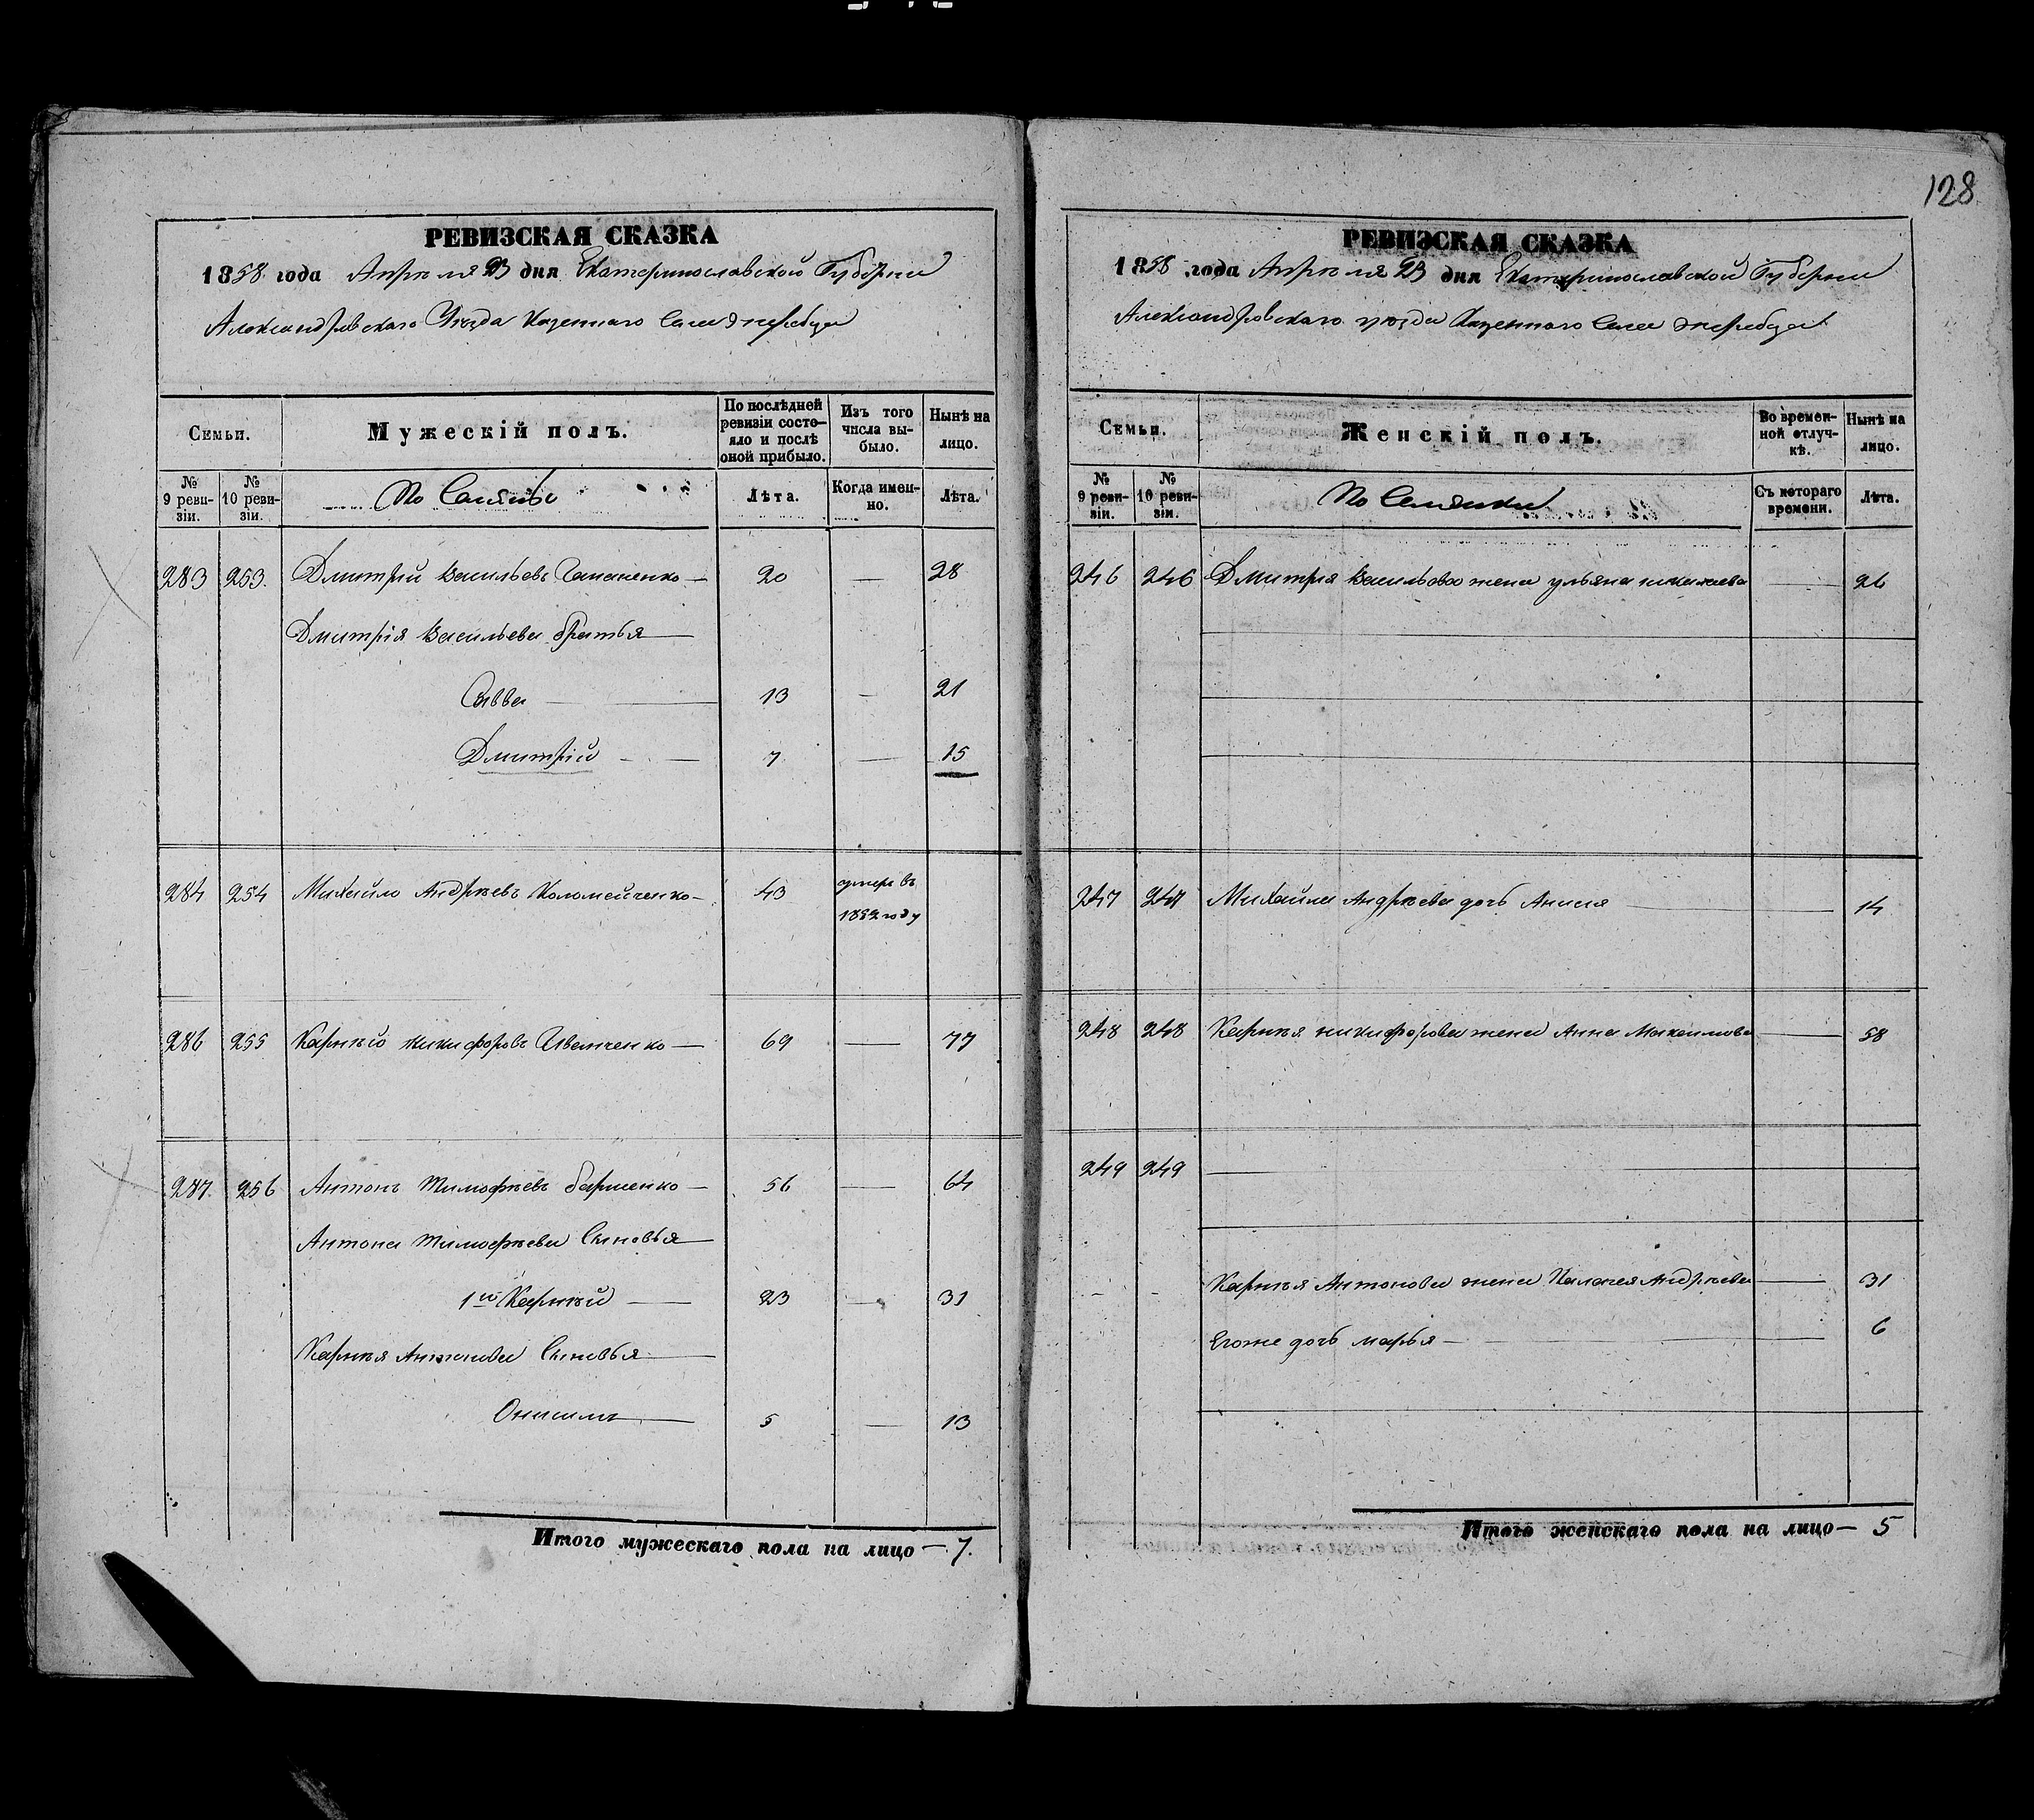 128
РЕВИЗСКАЯ СКАЗКА
1858 года Апреля 23 дня Екатеринославской Губернии
Александровскаго Уезда Казеннаго Села Жеребца
Семьи.
Мужескій полъ.
По послѣдней ревизіи состо-яло и послѣ оной прибыло.
Изъ того числа вы-было.
Нынѣ на лицо.
№ 9 реви-зіи.
№ 10 реви-зіи.
Лѣта.
Когда имен-но.
Лѣта.
283 253. Дмитрій Васильевъ — 20 — 28
Дмитрія Васильева братья
Савва 13 — 21
Дмитрій 7 — 15
284 254 Михайло Андрѣевъ Коломейченко 43 умеръ въ 1852 году
286 255 Карнѣй Никифоровъ Иванченко — 69 — 77
287. 256 Антонъ Тимофѣевъ — 56 — 64
Антона Тимофѣева Сыновья
1й Карнѣй — 23 — 31
Карнѣя Антонова Сыновья
Онисимъ 5 — 13
Итого мужескаго пола на лицо — 7.
РЕВИЗСКАЯ СКАЗКА
1858 года Апреля 23 дня Екатеринославской Губернии
Александровскаго уезда Казеннаго Села Жеребца
Семьи.
Женскій полъ.
Во времен-ной отлуч-кѣ.
Нынѣ на лицо.
№ 9 реви-зіи.
№ 10 реви-зіи.
Съ котораго времени.
Лѣта.
246 246 Дмитрія Васильева жена Ульяна — 26
247 247 Михайла Андрѣева дочь Анисия — 14
248 248 Карнѣя Никифорова жена Анна Максимова — 58
249 249
Карнѣя Антонова жена Пелагея Андрѣева — 31
Егоже дочь Марья — 6
Итого женскаго пола на лицо — 5